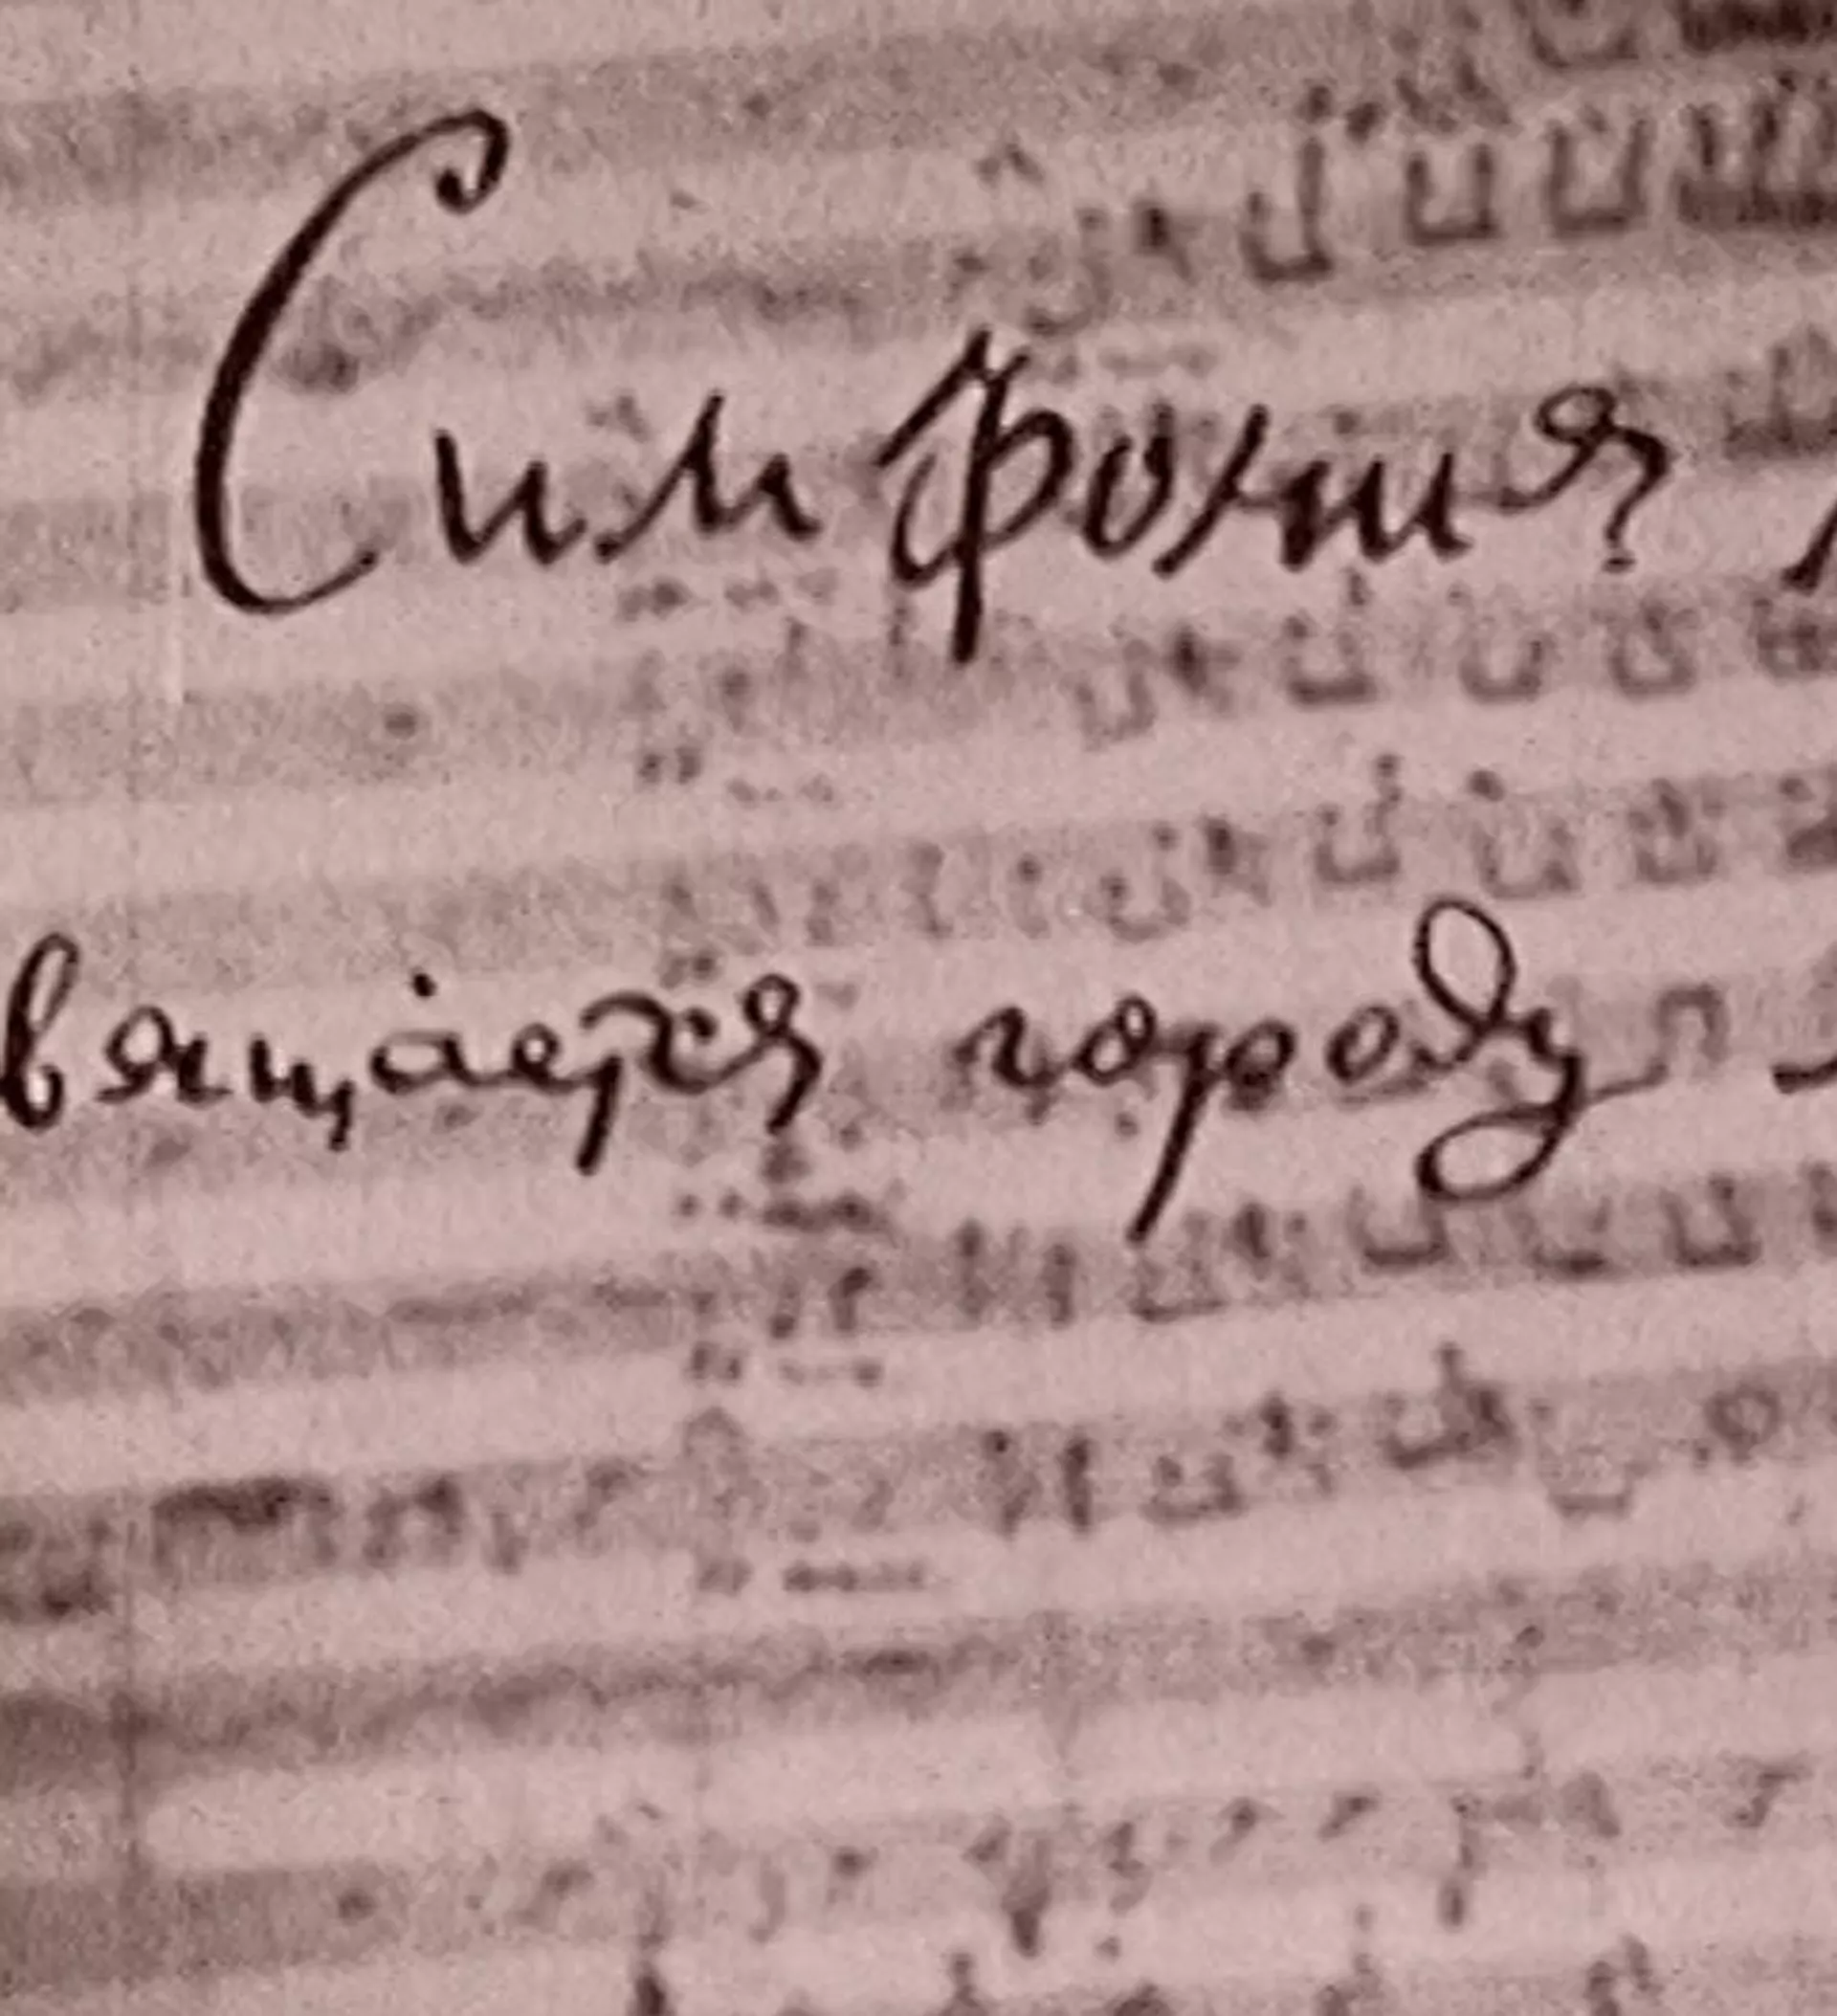 Симфония
вящается городу